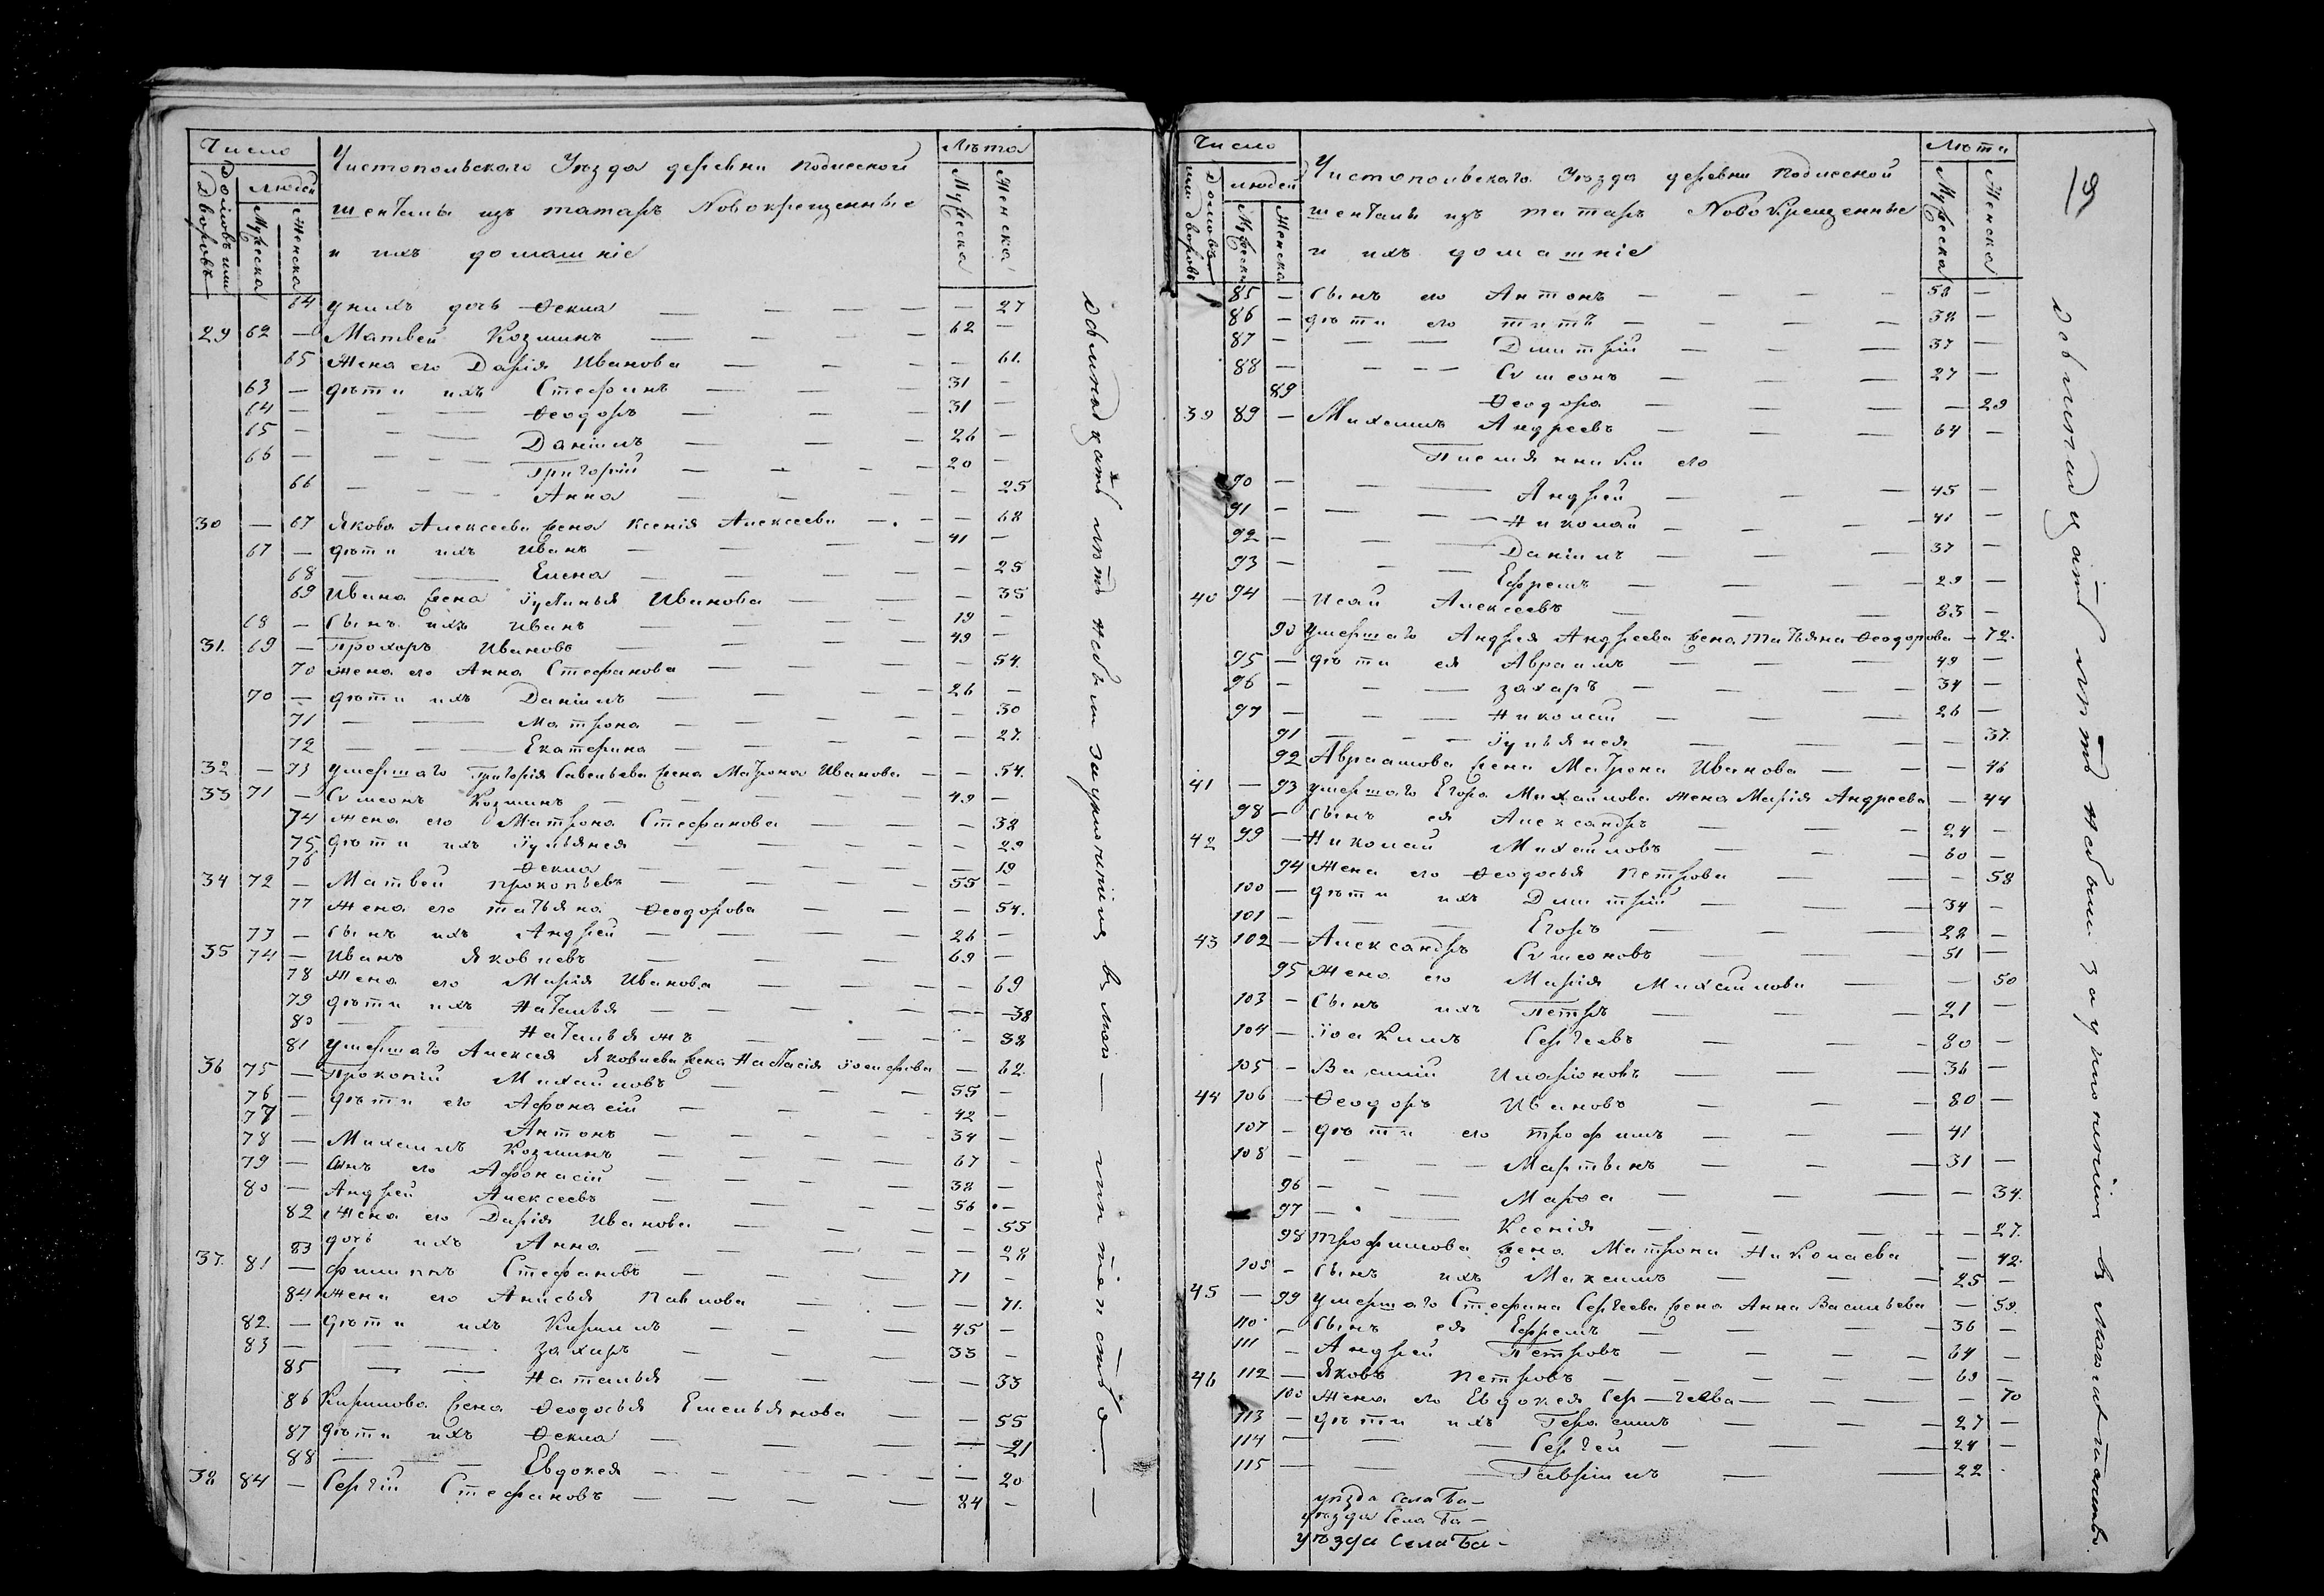 Число
Домовъ или Дворовъ
людей
Мужеска
Женска
Чистопольскаго Уѣзда деревни подлесной
шентала изъ татаръ Новокрещенные
и ихъ домашніе
Лѣта
Мужеска
Женска
64 у нихъ дочь Ѳекла — — — — — 27
29 62 — Матвей Козминъ — — — — 62 —
65 Жена его Дарія Иванова — — — — 61.
63 — дѣти ихъ Стефанъ — — 31 —
64 — — — Ѳеодоръ — — — 31 —
65 — — — Даніилъ — — — 26 —
66 — — — Григорій — — — — 20 —
66 — — — Анна — — — — 25
30 — 67 Якова Алексеева жена Ксенія Алексеева — — — 68
67 — дѣти ихъ Иванъ — — — — 41 —
68 — — Елена — — — — — 25
69 Ивана жена Іулянья Иванова — — — 35
68 — сынъ ихъ Иванъ — — — — 19 —
31. 69 — Прохоръ Ивановъ — — — — 49 —
70 Жена его Анна Стефанова — — — — 54.
70 — дѣти ихъ Даніилъ — — — — 26 —
71 — — Матрона — — — — — 30
72 — — — Екатерина — — — — — 27.
32 — 73 умершаго Григорія Савельева жена Матрона Иванова — — 54.
33 71 — Сѵмеонъ Козминъ — — — — 49 —
74 Жена его Матрона Стефанова — — — 38
75 дѣти ихъ Іульянея — — — — — 29
76 Ѳекла — — — — — 19
34 72 — Матвей Прокопьевъ — — — — 55 —
77 Жена его Татьяна Ѳеодорова — — — 54.
73 — сынъ ихъ Андрей — — — — 26 —
35 74 — Иванъ Яковлевъ — — — 69 —
78 Жена его Марія Иванова — — — — 69
79 дѣти ихъ Наталья — — — — — 38
80 — — Наталья жъ — — — — 38
81 умершаго Алексея Яковлева жена Настасія Іосифова — 62.
36 75 — Прокопій Михайловъ — — — 55 —
76 — дѣти его Афонасій — — — — 42 —
77 — Антонъ — — — — 34 —
78 — Михаилъ Козминъ — — — — 67 —
79 — сынъ его Афонасій — — — — 38 —
80 — Андрей Алексеевъ — — — — 56 —
82 Жена его Дарія Иванова — — — — 55
83 дочь ихъ Анна — — — — — 28
37. 81 — Филиппъ Стефановъ — — — 71 —
84 Жена его Анисья Павлова — — — 71.
82. — дѣти ихъ Кирилъ — — — 45 —
83 — — — Захаръ — — — 33 —
85 — — Наталья — — — — 33
86 Кирилова жена Ѳеодосья Емельянова — — 55
87 дѣти ихъ Ѳекла — — — — 21
88 — — Евдокея — — — — — 20
38 84 — Сергій Стефановъ — — — — 84 —
Число
или Домовъ дворовъ
людей
Мужеска
Женска
Чистопольскаго Уѣзда деревни подлесной
шентала изъ татаръ Новокрещенные
и ихъ домашніе
Лѣта
Мужеска
Женска
85 — сынъ его Антонъ — — — — 58 —
86 — дѣти его Титъ — — — — 38 —
87 — — — Дмитрій — — — 37 —
88 — — — — Сѵмеонъ — — — 27 —
89 Ѳеодора — — — — 29
39 89 — Михаилъ Андреевъ — — — 64 —
Племянники его
90 — — — Андрей — — — 45 —
91 — — — — Николай — — — — 41 —
92 — — — Даніилъ — — — 37 —
93 — — — Ефремъ — — — 29 —
40 94 — Исай Алексеевъ — — — 83 —
90 Умершаго Андрея Андреева жена Татьяна Ѳеодорова — 72.
95 — дѣти ея Авраамъ — — — 49 —
96 — — — Захаръ — — — — 34 —
97 — — — Николай — — — — 26 —
91 — — — Іульянея — — — 37.
92 Авраамова жена Матрона Иванова — — — 46
41 — 93 умершаго Егора Михайлова жена Марія Андреева — 44
98 — сынъ ея Александръ — — — 24 —
42 99 — Николай Михайловъ — — — 60 —
94 Жена его Ѳеодосья Петрова — — — 58
100 — дѣти ихъ Дмитрій — — — 34 —
101 — — — Егоръ — — — 28 —
43 102 — Александръ Сѵмеоновъ — — — 51 —
95 Жена его Марія Михайлова — — 50
103 — сынъ ихъ Петръ — — — 21 —
104 — Іоакимъ Сергеевъ — — — 80 —
105 — Василій Иларіоновъ — — — 36 —
44 106 — Ѳеодоръ Ивановъ — — — 80 —
107 — дѣти его Трофимъ — — — 41
108 — — — — Мартынъ — — — 31 —
96 — — — Марѳа — — — — 34.
97 — — Ксенія — — — — 27.
98 Трофимова жена Матрона Николаева — 42.
105 — сынъ ихъ Максимъ — — — 25 —
45 — 99 умершаго Стефана Сергеева жена Анна Васильева — 59.
110 — сынъ ея Ефремъ — — — — 36 —
111 — Андрей Петровъ — — — — 64 —
46 112 — Яковъ Петровъ — — — — 69 —
100 Жена его Евдокея Сергеева — — — — 70
113 — дѣти ихъ Герасимъ — — — 27 —
114 — — — Сергей — — — 24 —
115 — — — Гавріилъ — — 22
уѣзда села Ба—
уѣзда села Ба—
уѣзда села Ба—